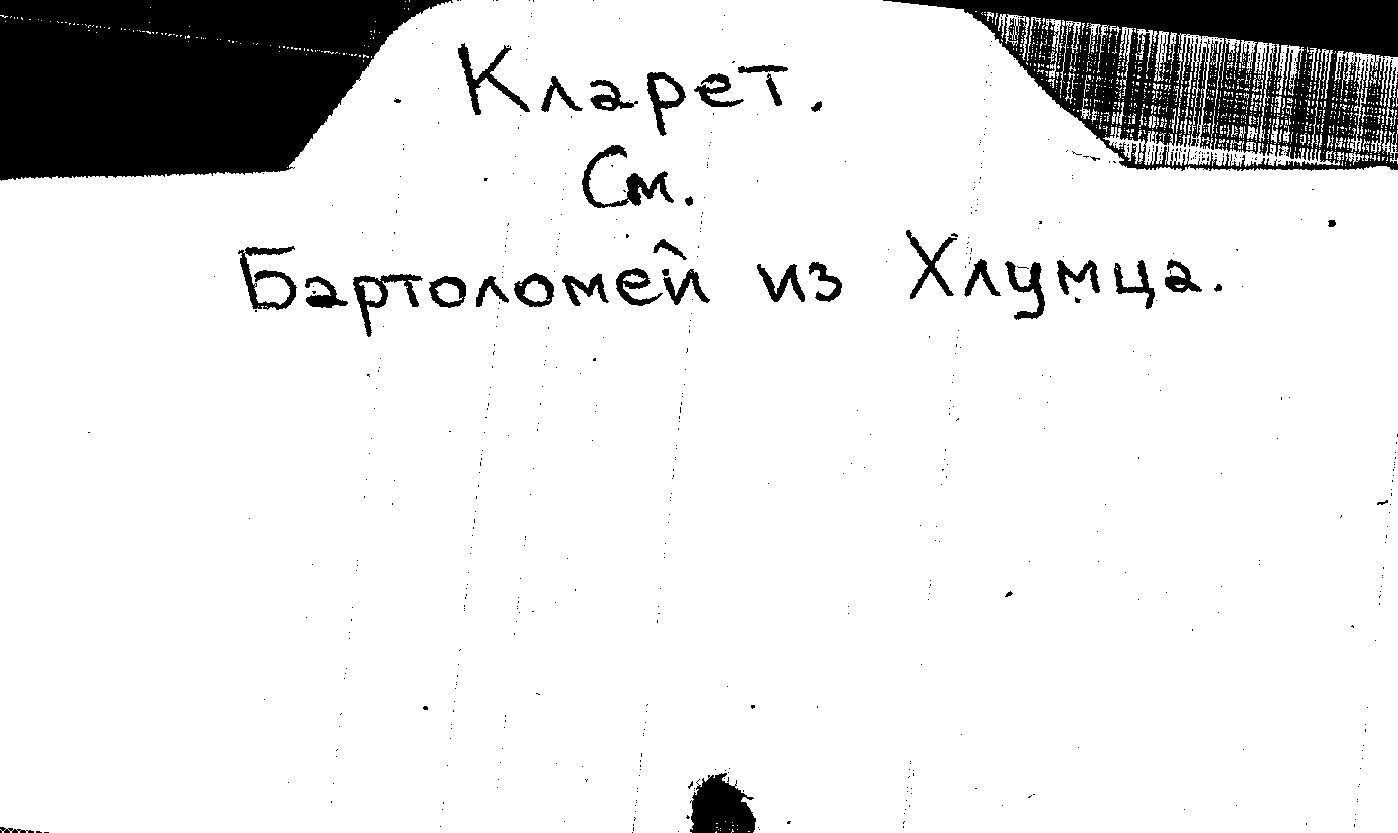 Кларет.
См.
Бартоломей из Хлумца.